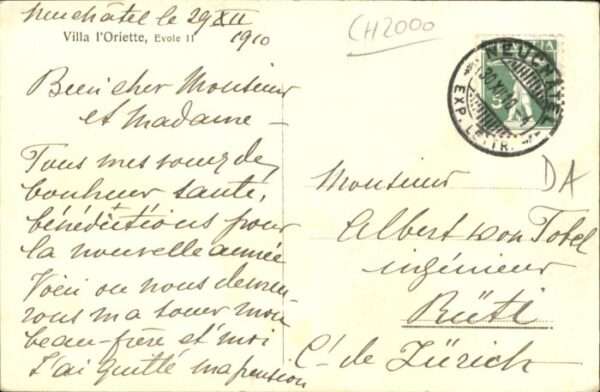 Neuchâtel le 29 XII
1910
Villa l'Oriette, Evole 11
Bien cher Monsieur
et Madame —
Tous mes voeux de
bonheur santé,
bénédictions pour
la nouvelle année
Voici ou nous demeu
rons ma soeur mon
beau-frère et moi
J'ai quitté ma pension
CH2000
NEUCHATEL
EXP. LETTR.
5
DA
Monsieur
Albert von Tobel
ingénieur
Rüti
Ct. de Zürich